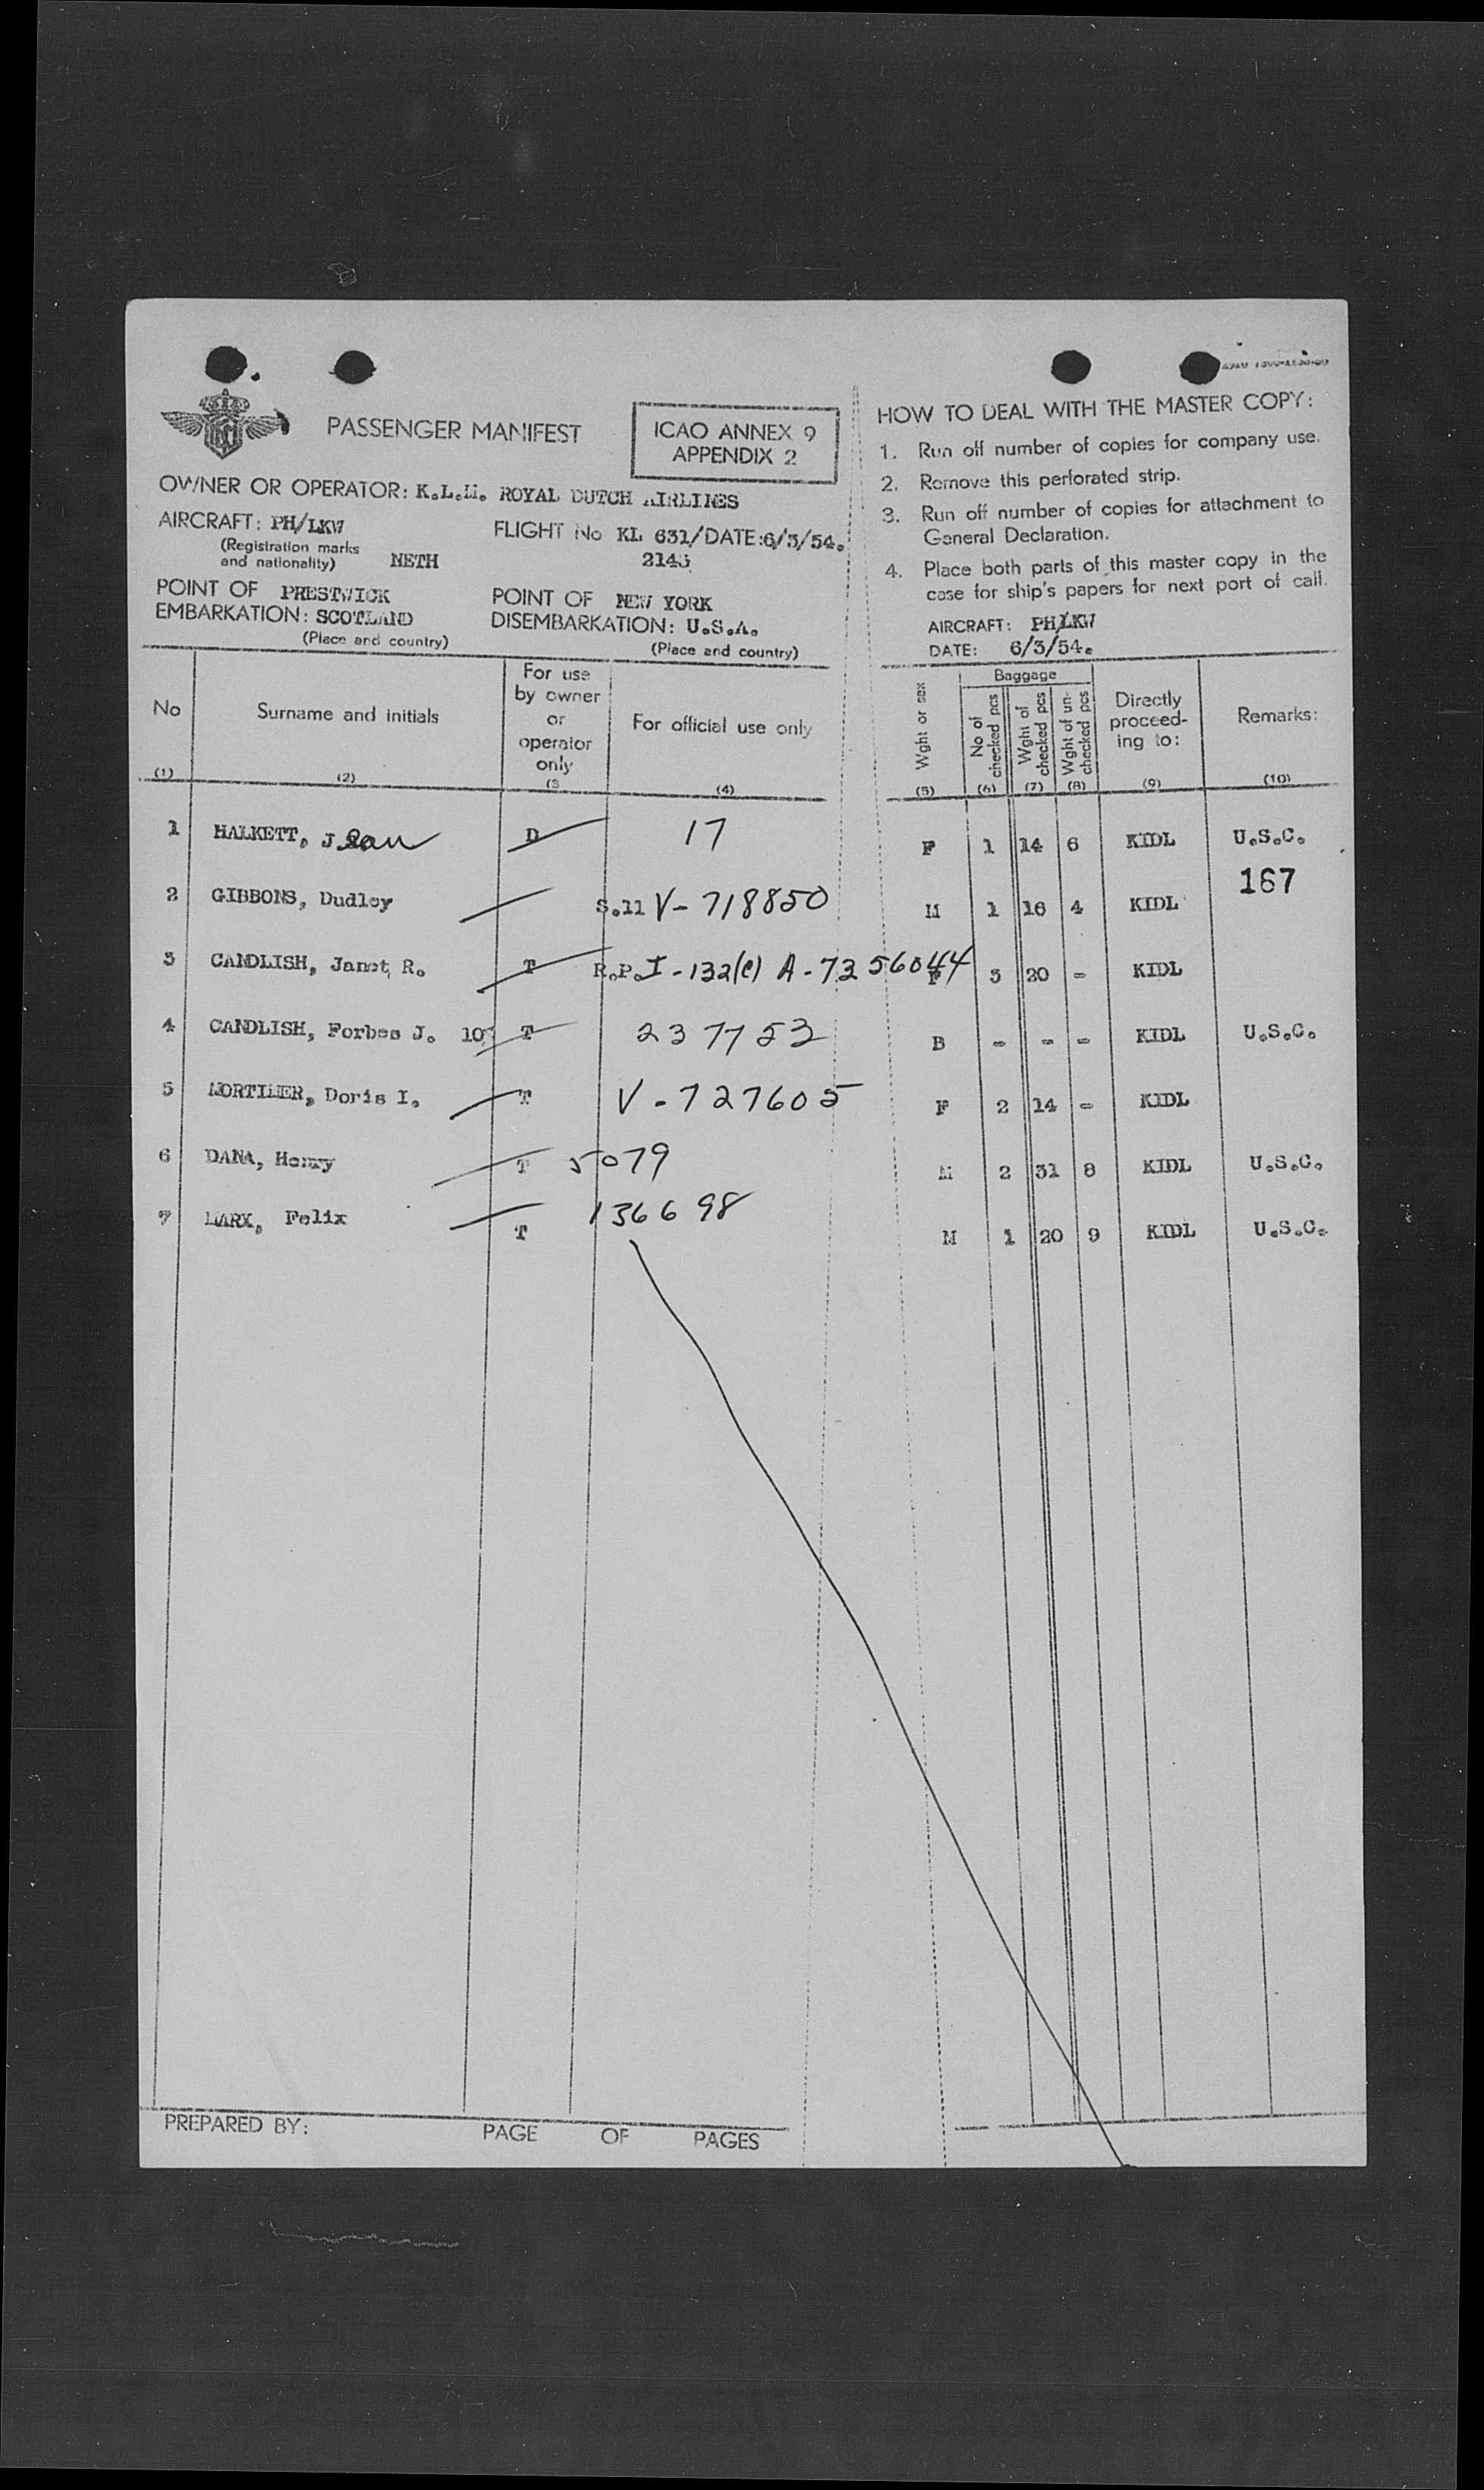 PASSENGER MANIFEST
ICAO ANNEX 9
APPENDIX 2
OWNER OR OPERATOR: K.L.M. ROYAL DUTCH AIRLINES
AIRCRAFT: PH/LKW
(Registration marks
and nationality) NETH
FLIGHT No KL 631/DATE:6/3/54.
2145
POINT OF PRESTWICK
EMBARKATION: SCOTLAND
(Place and country)
POINT OF NEW YORK
DISEMBARKATION: U.S.A.
(Place and country)
HOW TO DEAL WITH THE MASTER COPY:
1. Run off number of copies for company use.
2. Remove this perforated strip.
3. Run off number of copies for attachment to
General Declaration.
4. Place both parts of this master copy in the
case for ship's papers for next port of call.
AIRCRAFT: PH/LKW
DATE: 6/3/54.
No
(1)
Surname and initials
(2)
For use
by owner
or
operator
only
(3
For official use only
(4)
Wght or sex
(5)
Baggage
No of
checked pcs
(6)
Wght of
checked pcs
(7)
Wght of un-
checked pcs
(8)
Directly
proceed-
ing to:
(9)
Remarks:
(10)
1 HALKETT, Jean D 17 F 1 14 6 KIDL U.S.C.
167
2 GIBBONS, Dudley S.11 V-718850 M 1 16 4 KIDL
3 CANDLISH, Janet R. T R.P. I-132(e) A-7256044 F 3 20 - KIDL
4 CANDLISH, Forbes J. 10% T 237753 B - - - KIDL U.S.C.
5 MORTIMER, Doris I. T V-727605 F 2 14 - KIDL
6 DANA, Henry T 5079 M 2 31 8 KIDL U.S.C.
7 MARX, Felix T 136698 M 1 20 9 KIDL U.S.C.
PREPARED BY:
PAGE OF PAGES